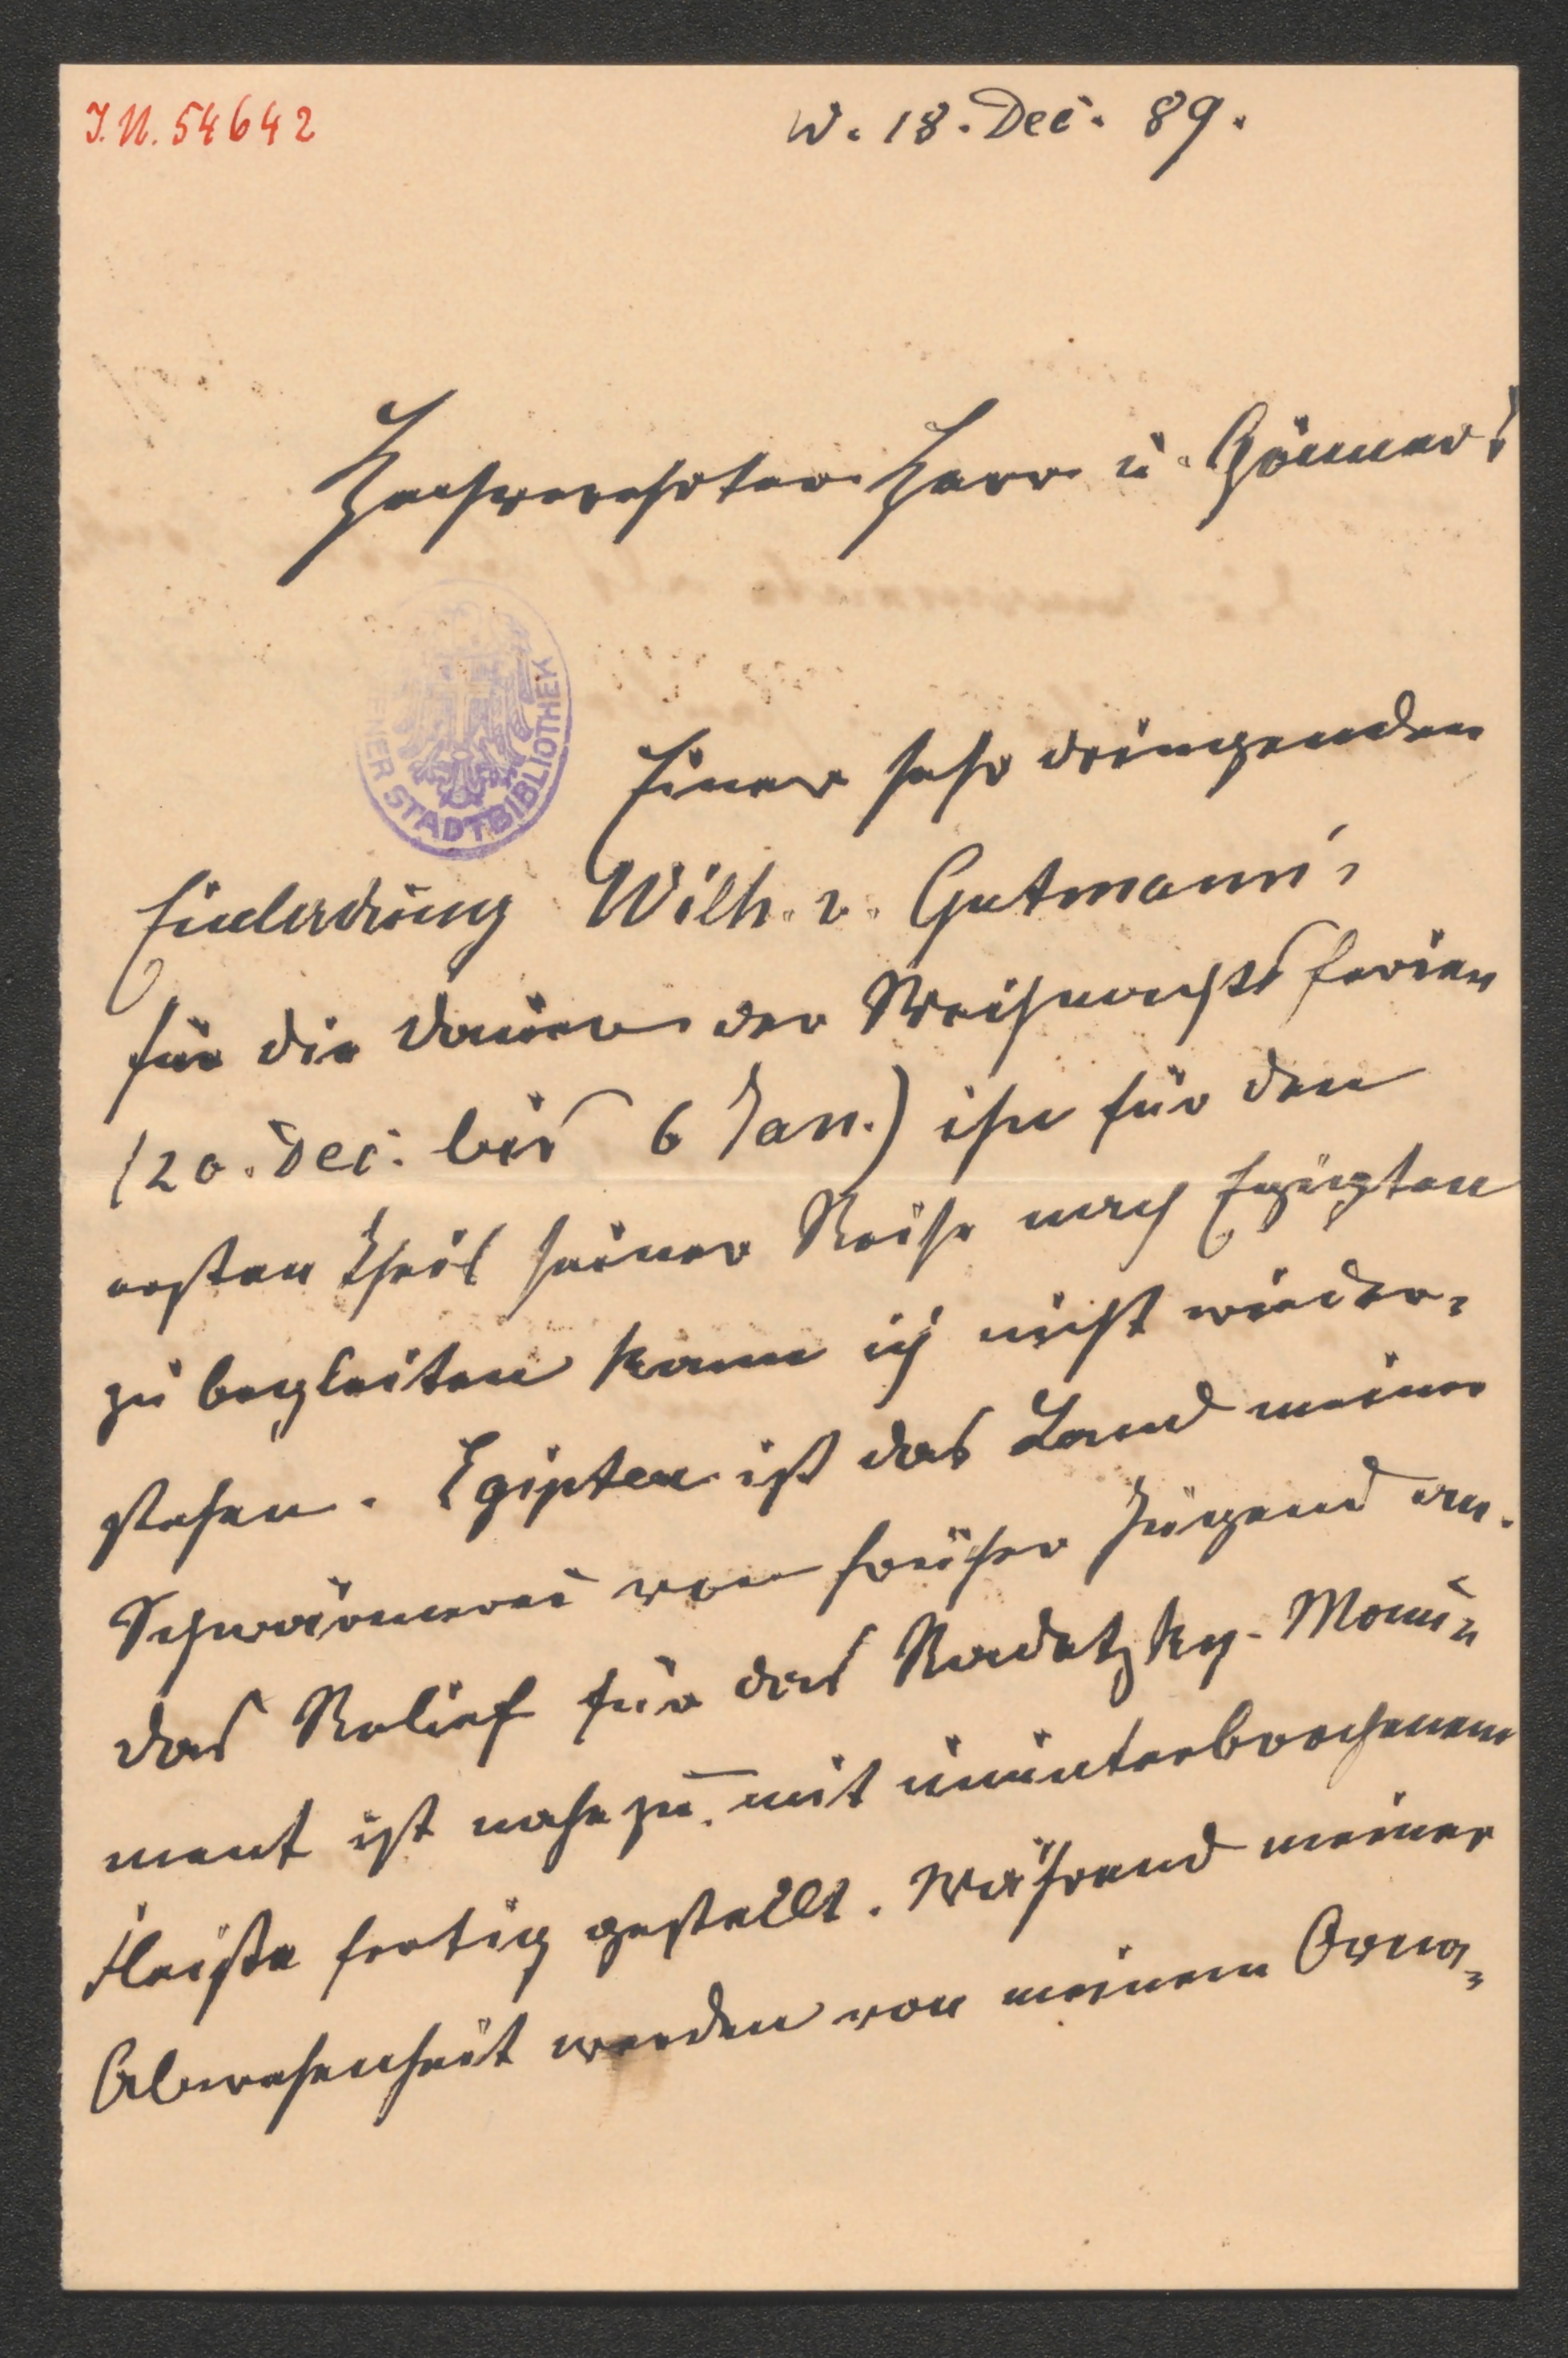 I.N. 54642
W. 18. Dec. 89.
Hochverehrter Herr u. Gönner!
WIENER STADTBIBLIOTHEK
Einer sehr dringenden
Einladung Wilh. v. Gutmann's
für die Dauer der Weihnachtsferien
(20. Dec. bis 6 Jan.) ihn für den
ersten Theil seiner Reise nach Egypten
zu begleiten kann ich nicht wieder-
stehen. Egipten ist das Land meiner
Schwärmerei von früher Jugend an.
Das Relief für das Radetzky-Monu-
ment ist nahezu mit ununterbrochenem
Fleiße fertig gestellt. Während meiner
Abwesenheit werden von meinem Orna-